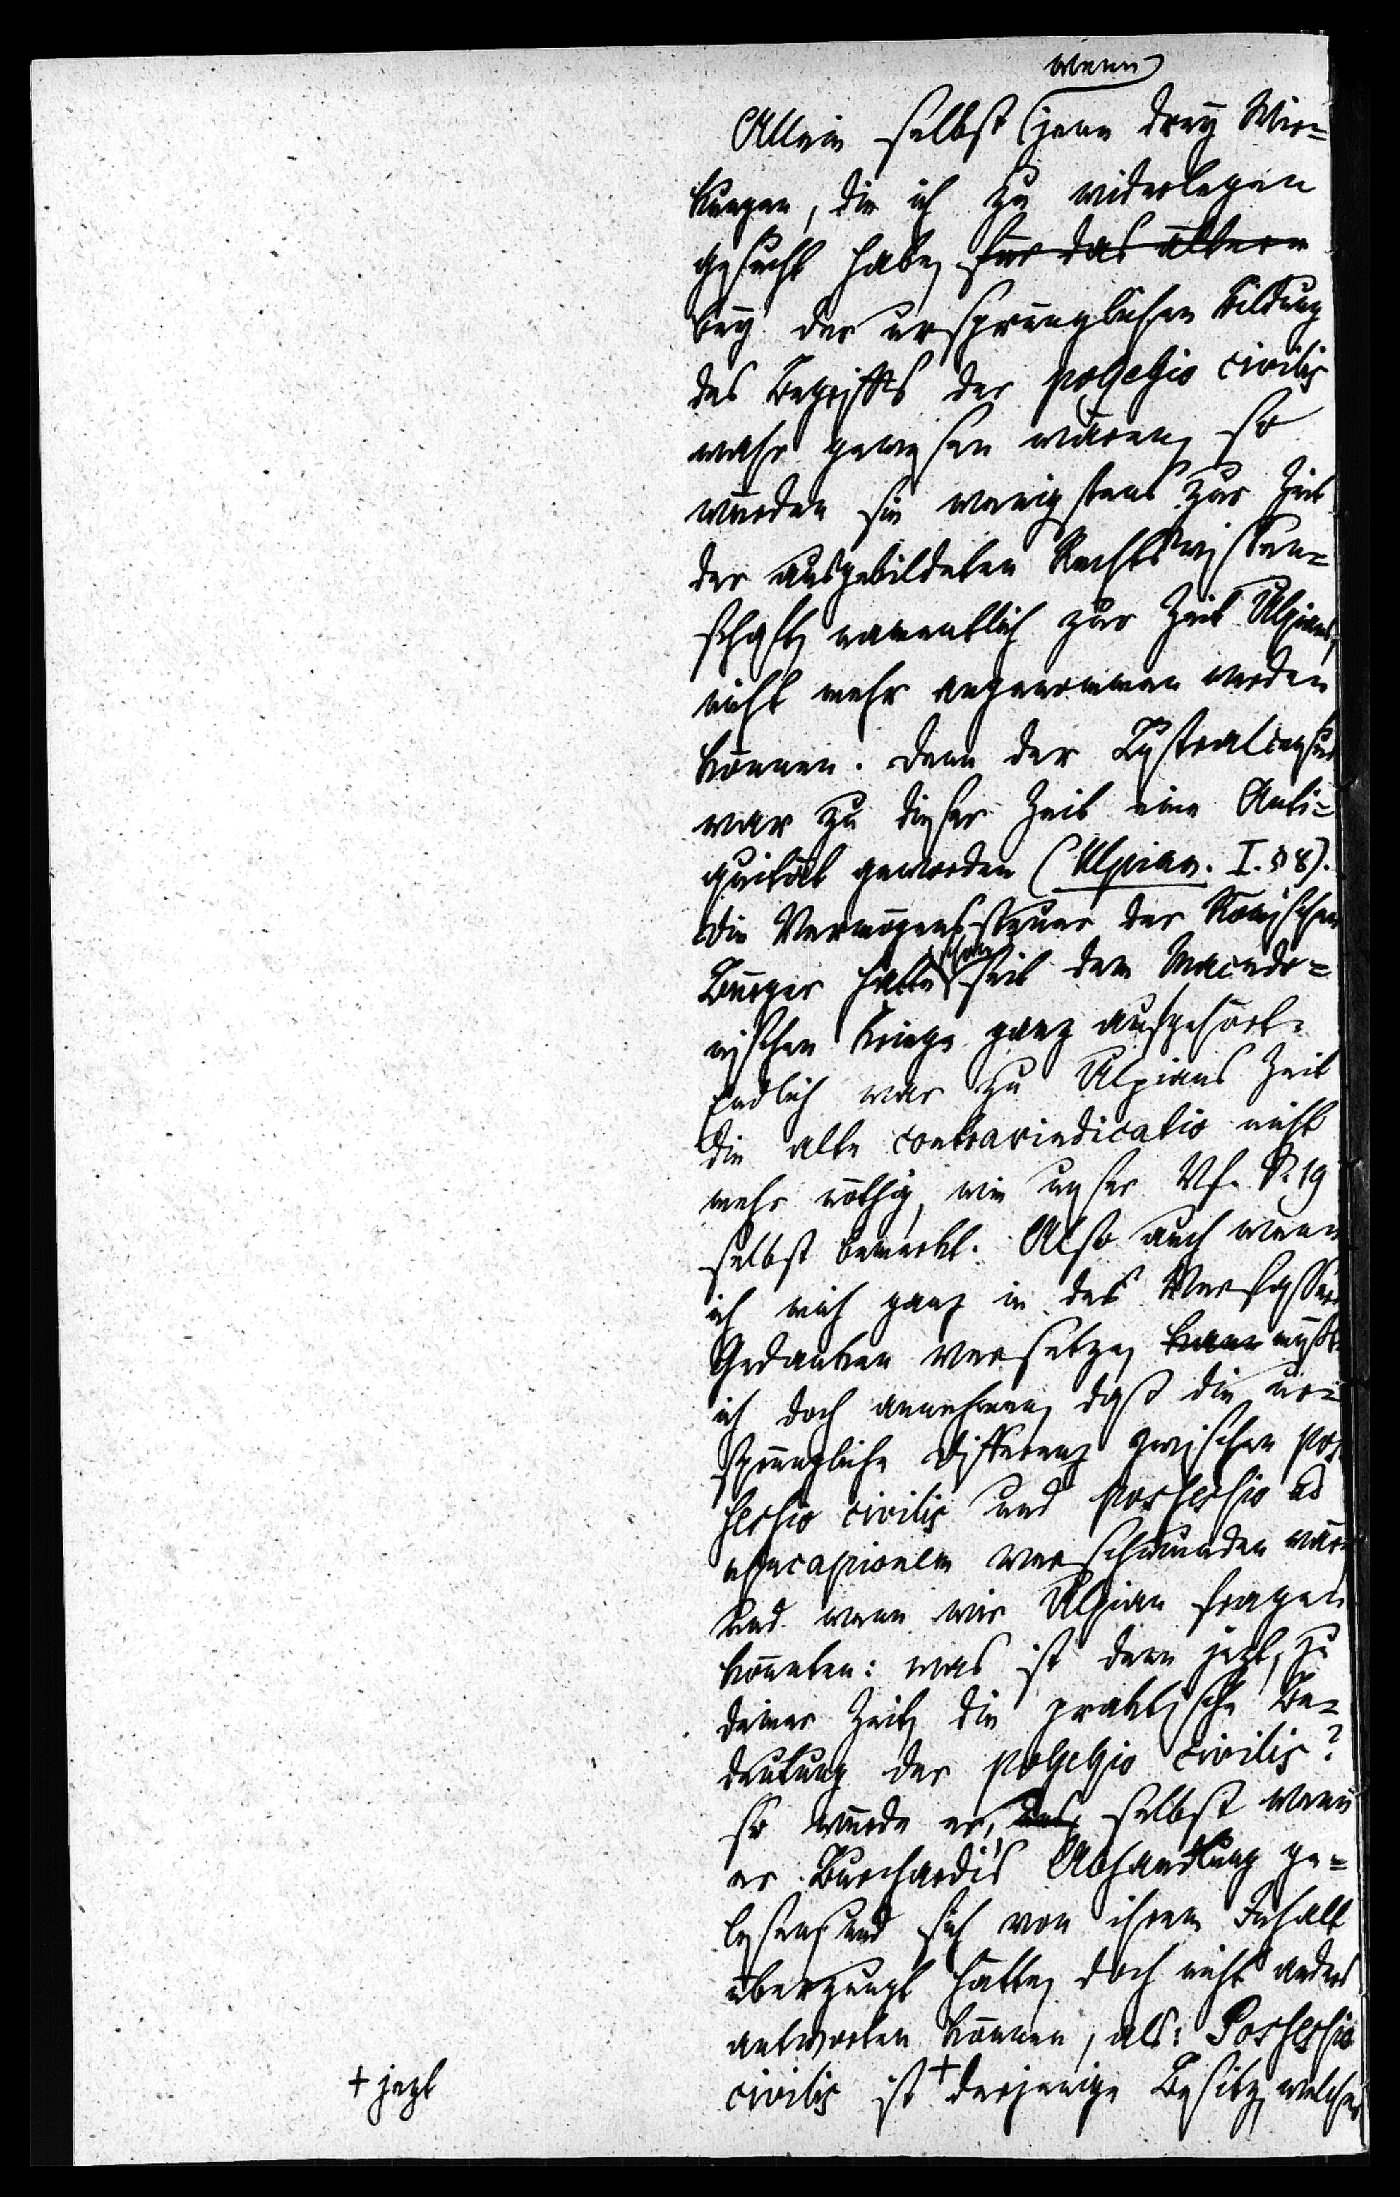 wenn
Allein selbst jene drey Wir=
kungen, die ich zu widerlegen
gesucht habe, für das ältere
bey der ursprünglichen Bildung
des Begriffs der possessio civilis
wahr gewesen wären, so
würden sie wenigstens zur Zeit
der ausgebildeten Rechtswissen=
schaft, namentlich zur Zeit Ulpians,
nicht mehr angenommen werden
können. Denn der Lustralcensus
war zu dieser Zeit eine Anti=
quität geworden (Ulpian. I. § 8).
Die Vermögenssteuer der Römischen
Bürger hatte schon seit dem Macedo=
nischen Kriege ganz aufgehört.
Endlich war zu Ulpians Zeit
die alte contravindicatio nicht
mehr nöthig, wie unser Vf. S. 19
selbst bemerkt. Also auch wenn
ich mich ganz in des Verfassers
Gedanken versetze, kann müßte
ich doch annehmen, daß die ur=
sprüngliche Differenz zwischen pos
sessio civilis und possessio ad
usucapionem verschwunden wäre,
und wenn wir Ulpian fragen
könnten: was ist denn jezt, zu
deiner Zeit, die praktische Be=
deutung der possessio civilis?
so würde er, selbst wenn
er Burchardi's Abhandlung ge=
lesen, und sich von ihrem Inhalt
überzeugt hätte, doch nicht anders
antworten können, als: Possessio
civilis ist + derjenige Besitz, welcher
+ jezt